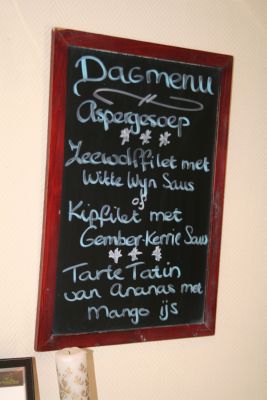 Dagmenu
Aspergesoep
Zeewolffilet met
Witte Wyn Saus
of
Kipfilet met
Gember-Kerrie Saus
Tarte Tatin
van Ananas met
mango ijs